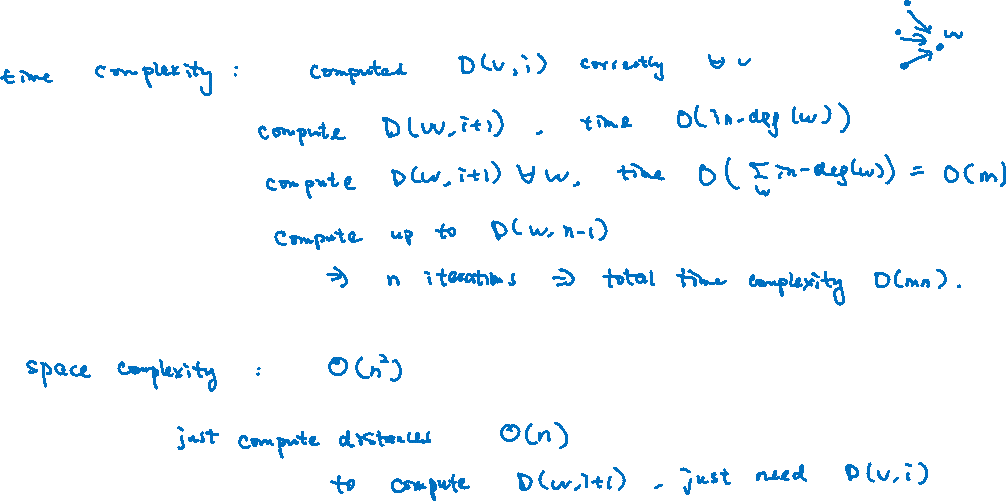 w
time complexity : computed D(v,i) correctly ∀ v
compute D(w,i+1) , time O(in-deg(w))
compute D(w,i+1) ∀w, time O(∑_w in-deg(w)) = O(m)
compute up to D(w,n-1)
⇒ n iterations ⇒ total time complexity O(mn).
space complexity : Θ(n²)
just compute distances Θ(n)
to compute D(w,i+1) , just need D(v,i)